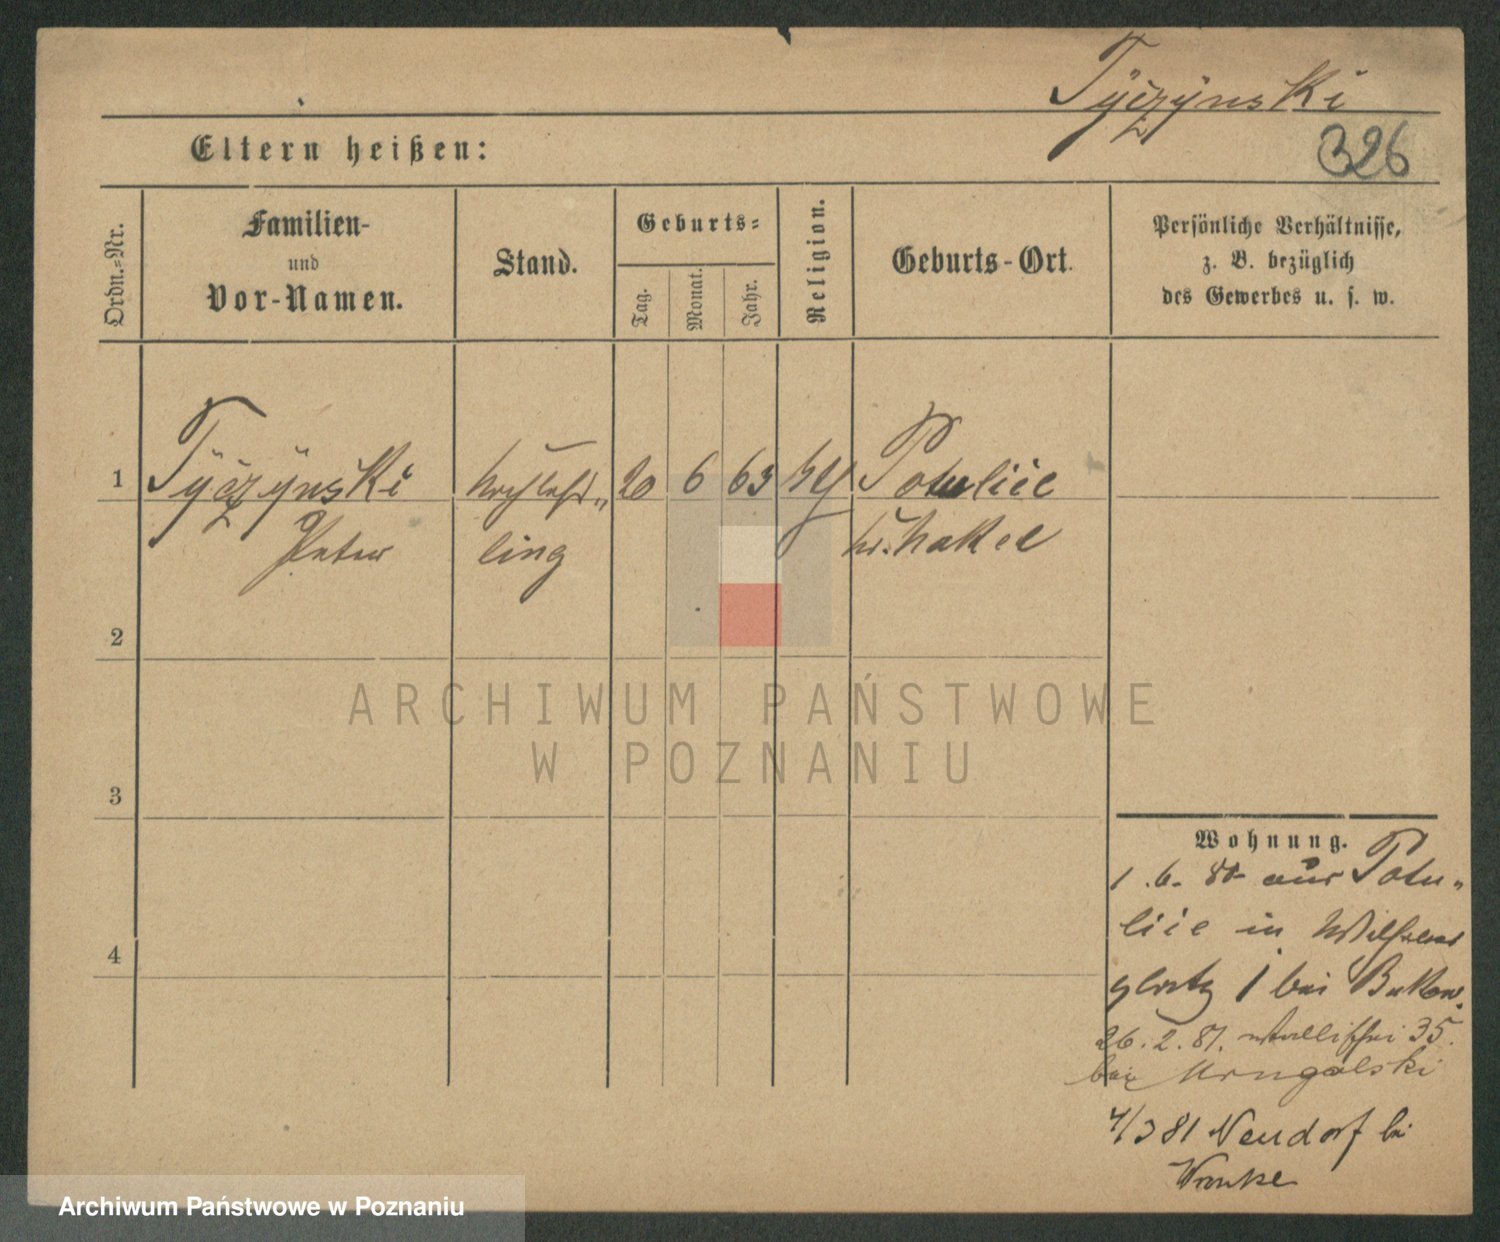 Tyczynski
326
Eltern heißen:
Ordn.-Nr.
Familien-
und
Vor-Namen.
Stand.
Geburts-
Tag.
Monat.
Jahr.
Religion.
Geburts-Ort.
Persönliche Verhältnisse,
z. B. bezüglich
des Gewerbes u. s. w.
1 Tyczynski 20 6 63 Potulice
Peter ling Nakel
2
3
4
Wohnung.
1.6. 80 aus Potu-
lice in Wilhelms
platz 1 bei Bukow.
26.2.81. Wallischei 35.
bei
4/3 81 Neudorf bei
Wronke
ARCHIWUM PAŃSTWOWE
W POZNANIU
Archiwum Państwowe w Poznaniu